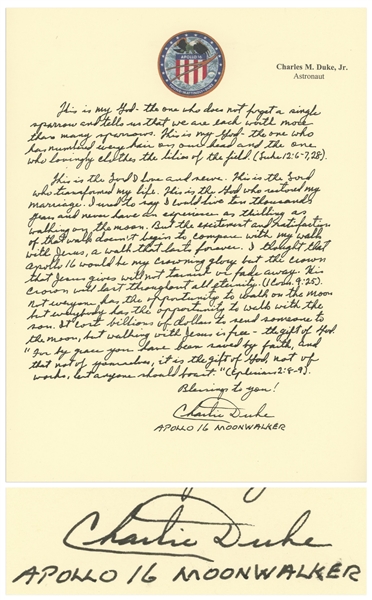 APOLLO 16
Charles M. Duke, Jr.
Astronaut
This is my God - the one who does not forget a single
sparrow and tells us that we are each worth more
than many sparrows. This is my God - the one who
has numbered every hair on our head and the one
who lovingly clothes the lilies of the field. (Luke 12:6-7,28).
This is the Lord I love and serve. This is the Lord
who transformed my life. This is the God who restored my
marriage. I used to say I could live ten thousand
years and never have an experience as thrilling as
walking on the moon. But the excitement and satisfaction
of that walk doesn't begin to compare with my walk
with Jesus, a walk that lasts forever. I thought that
Apollo 16 would be my crowning glory but the crown
that Jesus gives will not tarnish or fade away. His
crown will last throughout all eternity. (I Cor. 9:25).
Not everyone has the opportunity to walk on the moon
but everybody has the opportunity to walk with the
son. It cost billions of dollars to send someone to
the moon, but walking with Jesus is free - the gift of God
"For by grace you have been saved by faith, and
that not of yourselves, it is the gift of God, not of
works, lest anyone should boast." (Ephesians 2:8-9).
Blessings to you!
Charlie Duke
APOLLO 16 MOONWALKER
Charlie Duke
APOLLO 16 MOONWALKER